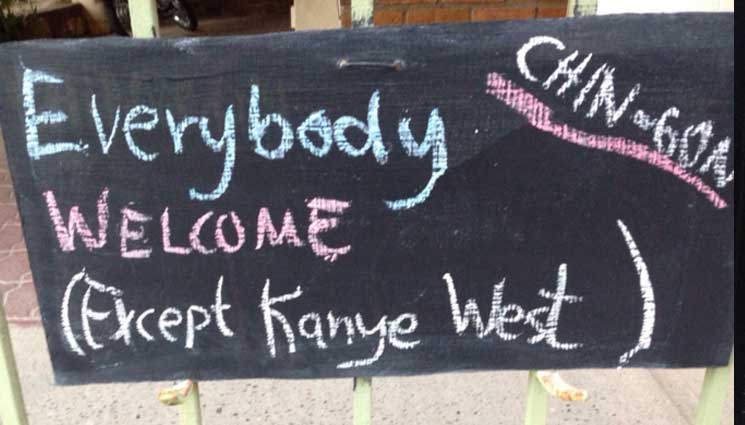 CHIN-GON
Everybody
WELCOME
(Except Kanye West)